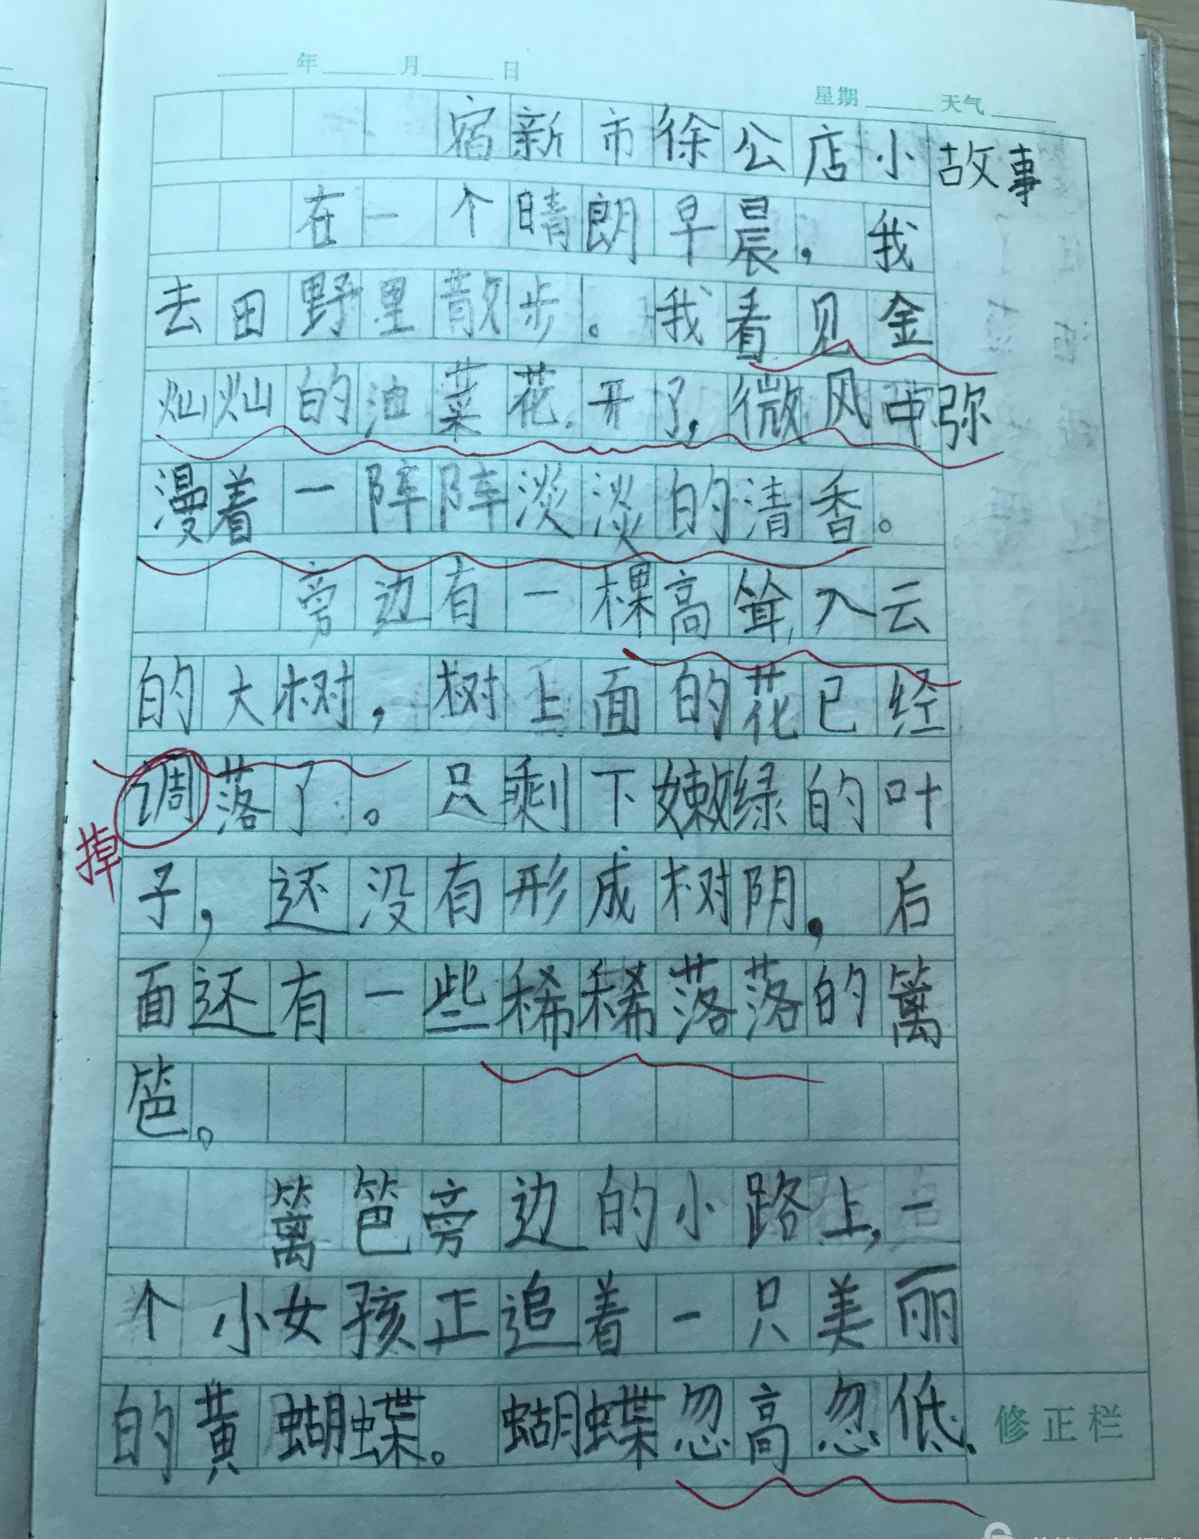 年 月 日
星期 天气
宿新市徐公店小故事
在一个晴朗早晨，我
去田野里散步。我看见金
灿灿的油菜花开了，微风中弥
漫着一阵阵淡淡的清香。
旁边有一棵高耸入云
的大树，树上面的花已经
调落了。只剩下嫩绿的叶
掉
子，还没有形成树阴，后
面还有一些稀稀落落的篱
笆。
篱笆旁边的小路上，一
个小女孩正追着一只美丽
的黄蝴蝶。蝴蝶忽高忽低、
修正栏